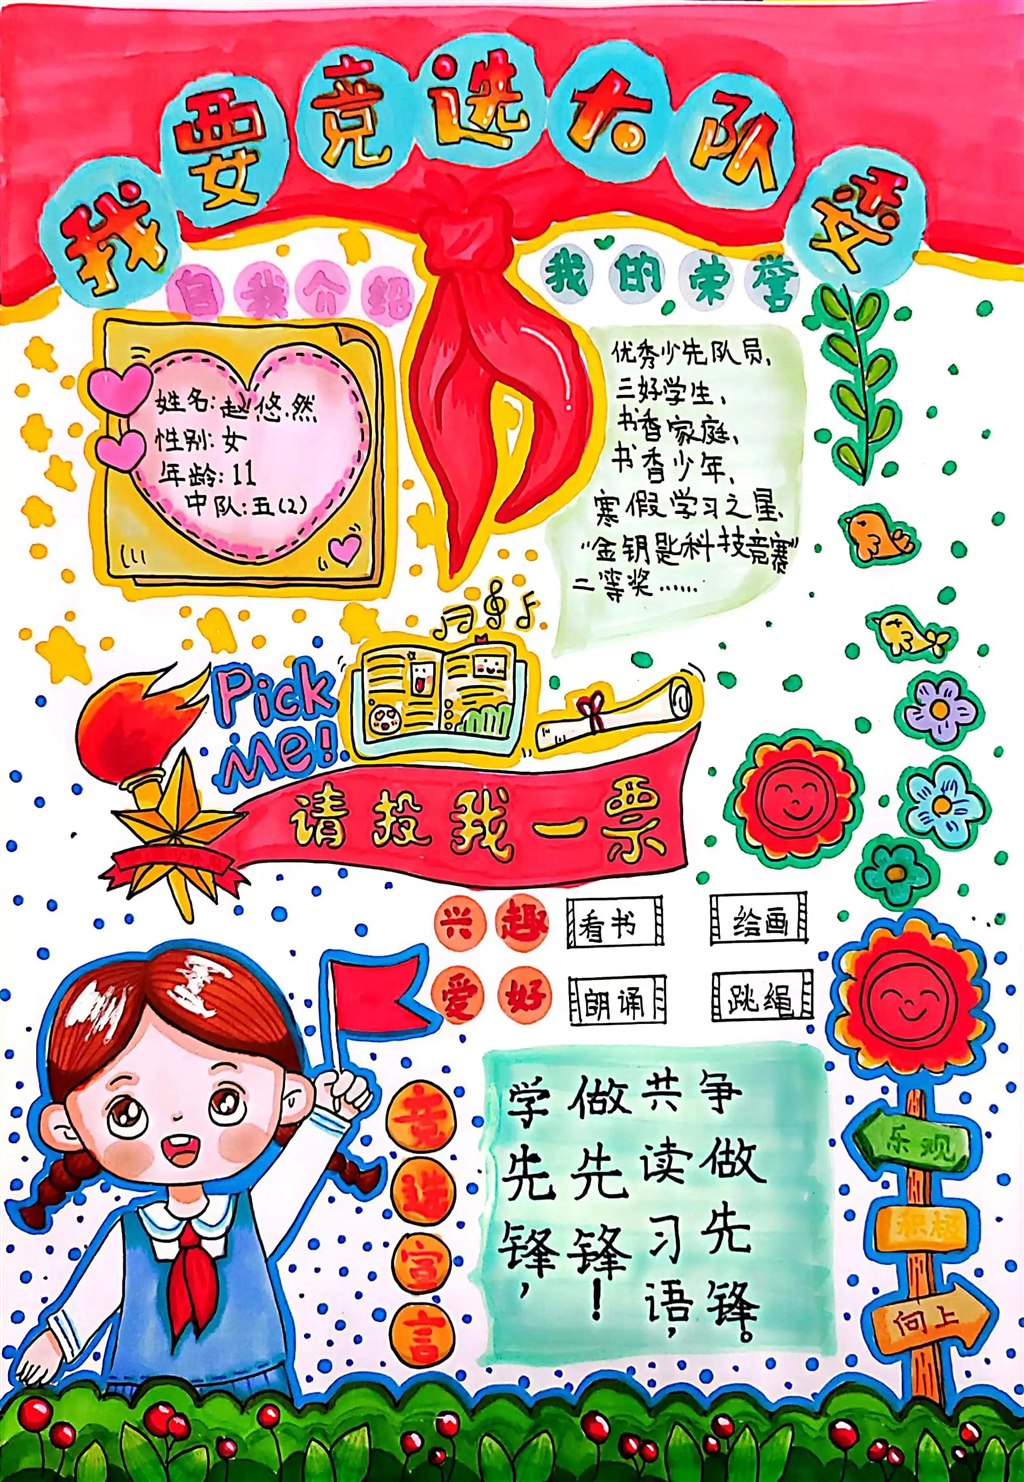 我要竞选大队委
自我介绍
姓名:赵悠然
性别:女
年龄:11
中队:五(2)
我的荣誉
优秀少先队员,
三好学生,
书香家庭,
书香少年,
寒假学习之星,
“金钥匙科技竞赛”
二等奖……
Pick
Me!
请投我一票
兴趣
爱好
看书
绘画
朗诵
跳绳
竞选宣言
学先锋,
做先锋!
共读习语,
争做先锋。
乐观
积极
向上